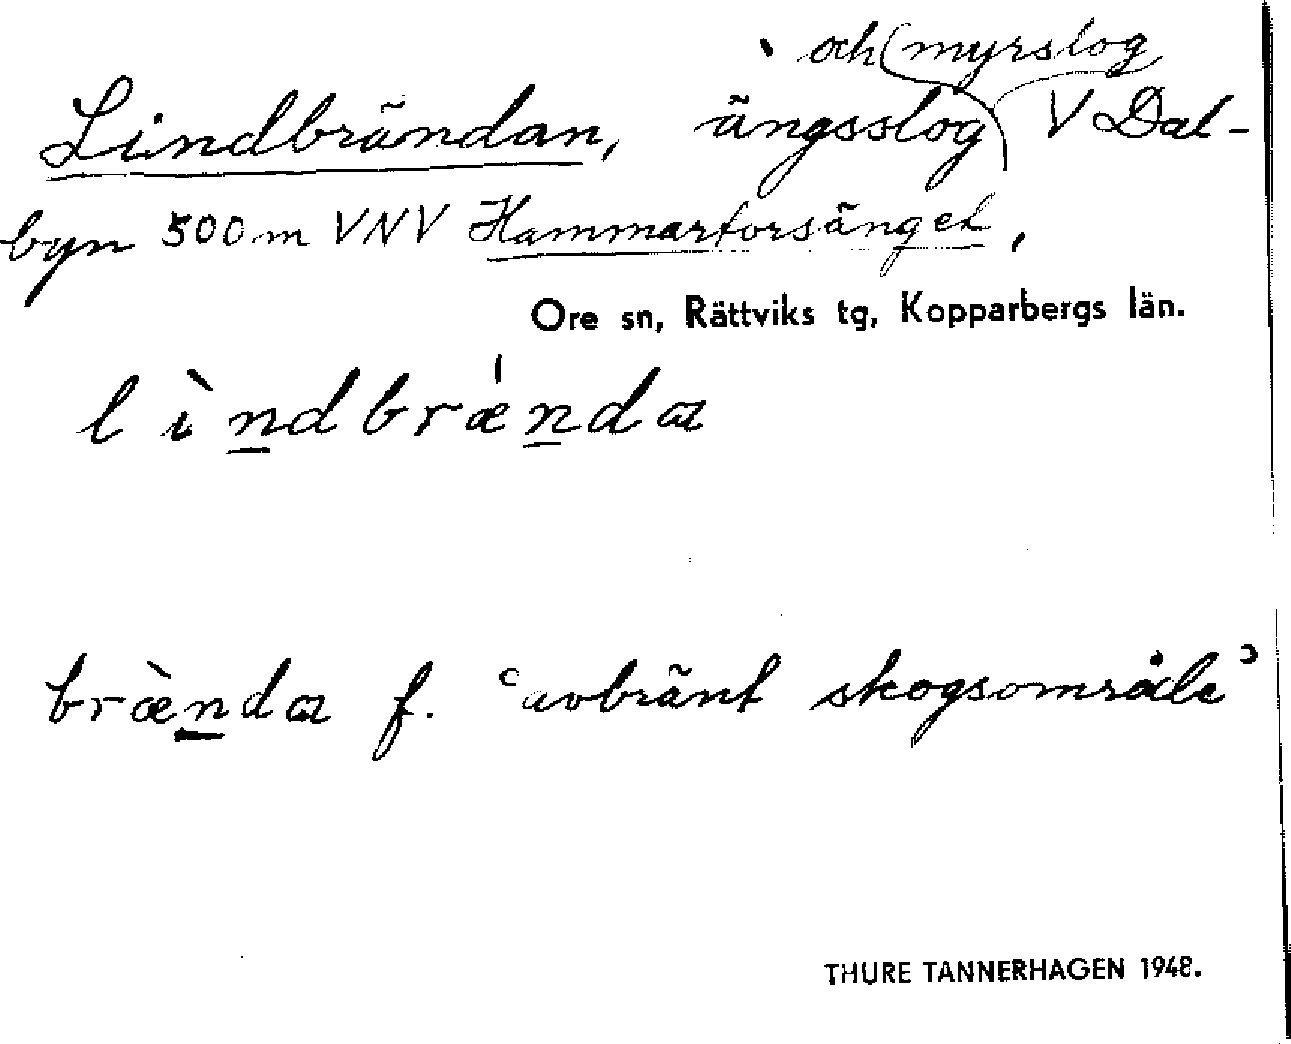 och myrslog
Lindbrändan, ängsslog V Dal-
byn 500 m VNV Hammarforsänget,
Ore sn, Rättviks tg, Kopparbergs län.
lìndbrǽnda
brænda f. ʿavbränt skogsområdeʾ
THURE TANNERHAGEN 1948.